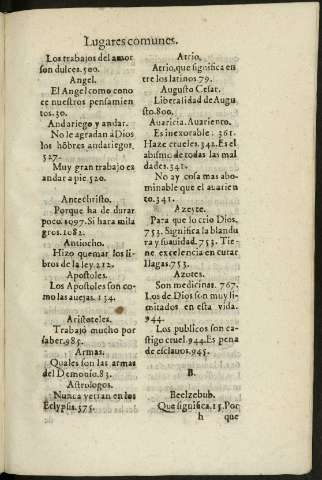 Lugares comunes.
Los trabajos del amor
son dulces.500.
Angel.
El Angel como cono
ce nuestros pensamien
tos.30.
Andariego y andar.
No le agradan à Dios
los hõbres andariegos.
527.
Muy gran trabajo es
andar a pie.520.
Antechristo.
Porque ha de durar
poco.1097.Si hara mila
gros.1082.
Antiocho.
Hizo quemar los li-
bros de la ley.212.
Apostoles.
Los Apostoles son co-
mo las auejas. 134.
Aristoteles.
Trabajò mucho por
saber.985.
Armas.
Quales son las armas
del Demonio.83.
Astrologos.
Nunca yerran en los
Eclypsis.375.
Atrio.
Atrio,que significa en
tre los latinos 79.
Augusto Cesar.
Liberalidad de Augu
sto.800.
Auaricia. Auariento.
Es inexorable. 361.
Haze crueles.342.Es el
abismo de todas las mal
dades.341.
No ay cosa mas abo-
minable que el auarien
to.341.
Azeyte.
Para que lo crio Dios.
753. Significa la blandu
ra y suauidad.753. Tie-
ne excelencia en curar
llagas.753.
Azotes.
Son medicinas. 767.
Los de Dios son muy li-
mitados en esta vida.
944.
Los publicos son ca-
stigo cruel 944.Es pena
de esclauos.945.
B.
Beelzebub.
Que significa.15.Por
h que